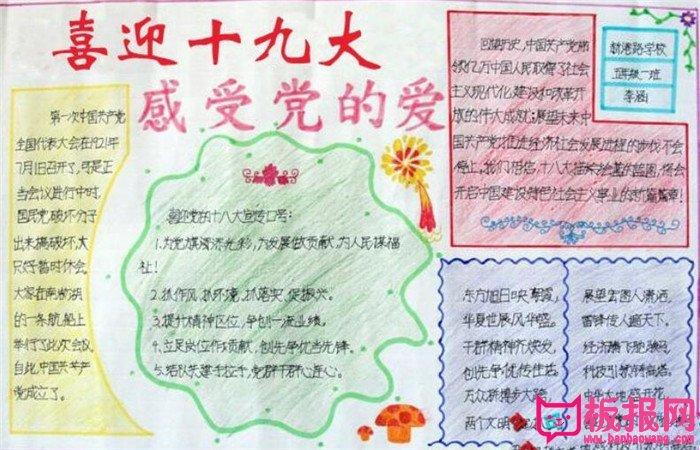 喜迎十九大
感受党的爱
第一次中国共产党
全国代表大会在1921年
7月1日召开了,可是正
当会议进行中时,
国民党破坏分子
出来搞破坏,大
只好暂时休会。
大家在南湖湖
的一条航船上
举行了此次会议,
自此,中国共产
党成立了。
喜迎党的十八大宣传口号:
1.为党旗添光彩,为发展做贡献,为人民谋福
祉!
2.抓作风,抓环境,抓落实,促振兴。
3.提升精神区位,争创一流业绩。
4.立足岗位作贡献,创先争优当先锋。
5.结队共建手拉手,党群干群心连心。
回望历史,中国共产党
领亿万中国人民取得了社会
主义现代化建设和改革开
放的伟大成就;展望未来中
国共产党推进经济社会发展进程的步伐不会
停止,我们相信,十八大描绘的蓝图,将会
开启中国建设特色社会主义事业的新篇章!
新港路学校
五年级一班
李涵
东方旭日映朝霞,
华夏世展风华盛。
干群精神齐焕发,
创先争优传佳话
万众新擂步大跨
两个文明
展望宏图人潇洒,
雷锋传人遍天下。
经济腾飞跑骏马,
科技引领
中华大地盛开花,
板报网
www.banbaowang.com